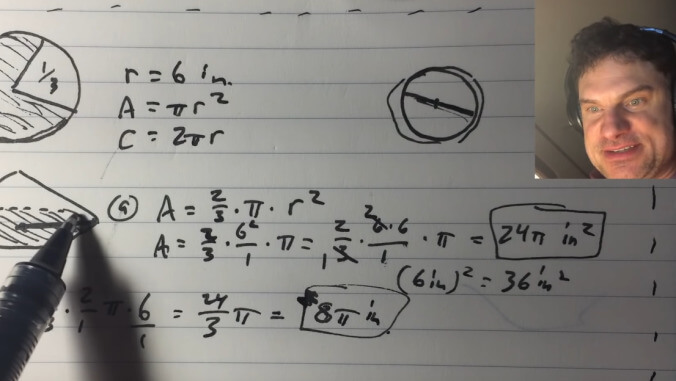 1/3
r = 6 in.
A = πr²
C = 2πr
(a) A = 2/3 · π · r²
A = 2/3 · 6²/1 · π = 2/3 · 6·6/1 · π = 24π in²
(6in)² = 36in²
· 2/1 π · 6/1 = 24/3 π = 8π in